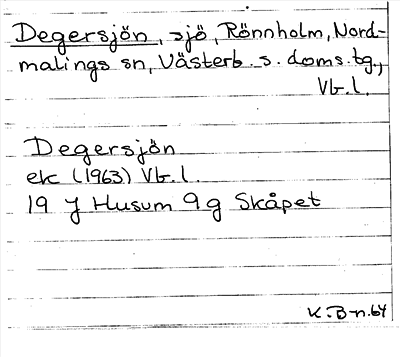 Degersjön, sjö, Rönnholm, Nord-
malings sn, Västerb. s. doms.tg.,
Vb.l.
Degersjön
ek (1963) Vb.l.
19 J Husum 9 g Skåpet
K.B-n.64